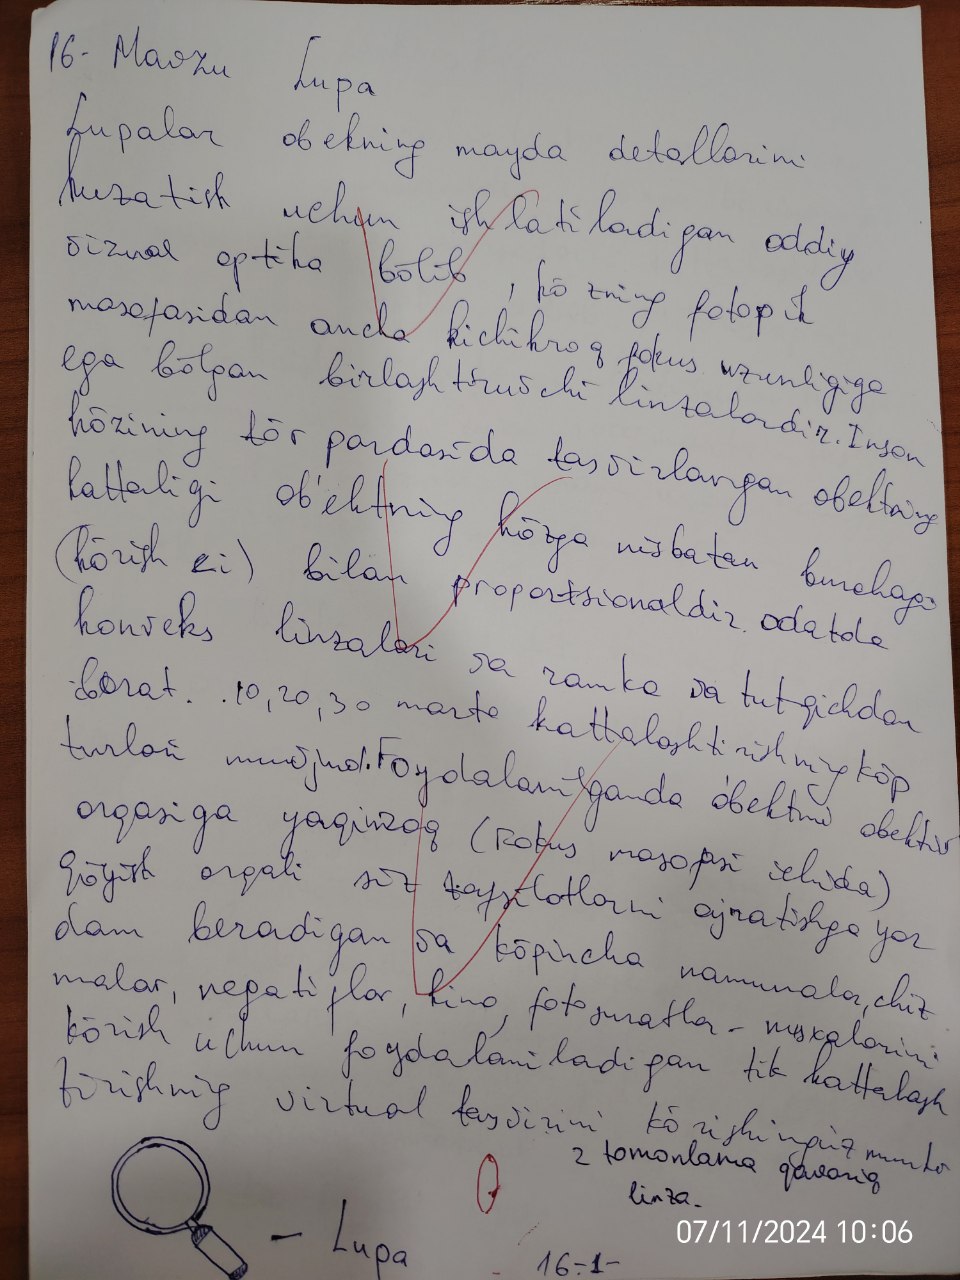 16- Mavzu Lupa
Lupalar obekning mayda detallarini
kuzatish uchun ishlatiladigan oddiy
vizual optika bōlib, kōzning fotopik
masofasidan ancha kichikroq fokus uzunligiga
ega bōlgan birlashtiruvchi linzalardir. Inson
kōzining tōr pardasida tasvirlangan obektning
kattaligi ob'ektning kōzga nisbatan burchagi
(kōrish) bilan proportsionaldir. odatda
konveks linzalari va ramka va tutqichdan
iborat. 10, 20, 30 marta kattalashtirishning kōp
turlari mavjud. Foydalanilganda obektni obektiv
orqasiga yaqinroq (Fokus masofasi ichida)
qōyish orqali siz tafsilotlarni ajratishga yor
dam beradigan va kōpincha namunalar, chiz
malar, negatiflar, kino, fotosuratlar - nusxalarini
kōrish uchun foydalaniladigan tik kattalash
tirishning virtual tasvirini kōrishingiz mumki
2 tomonlama qavariq
linza.
- Lupa
16-1-
07/11/2024 10:06